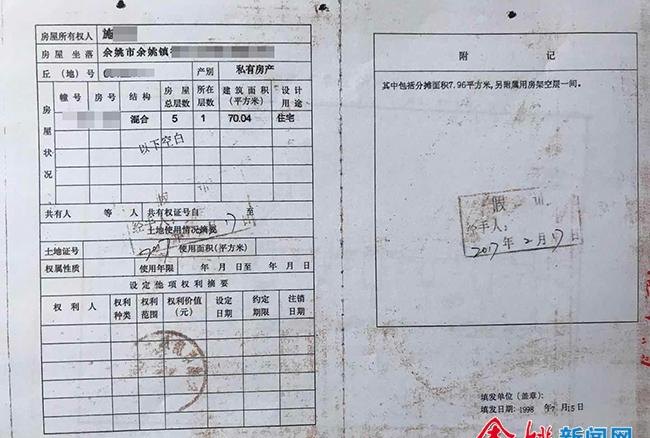 房屋所有权人 施
房屋坐落 余姚市余姚镇
丘(地)号 产别 私有房产
房屋状况
幢号 房号 结构 房屋总层数 所在层数 建筑面积(平方米) 设计用途
混合 5 1 70.04 住宅
以下空白
共有人 等 人 共有权证号自 至
土地使用情况摘要
土地证号 使用面积(平方米)
权属性质 使用年限 年 月 日至 年 月 日
设定他项权利摘要
权利人 权利种类 权利范围 权利价值(元) 设定日期 约定期限 注销日期
假
经手人:
2017 17
附 记
其中包括分摊面积7.96平方米,另附属用房架空层一间。
假
经手人:
2017年2月17日
填发单位(盖章):
填发日期:1998 年7 月15日
余姚新闻网